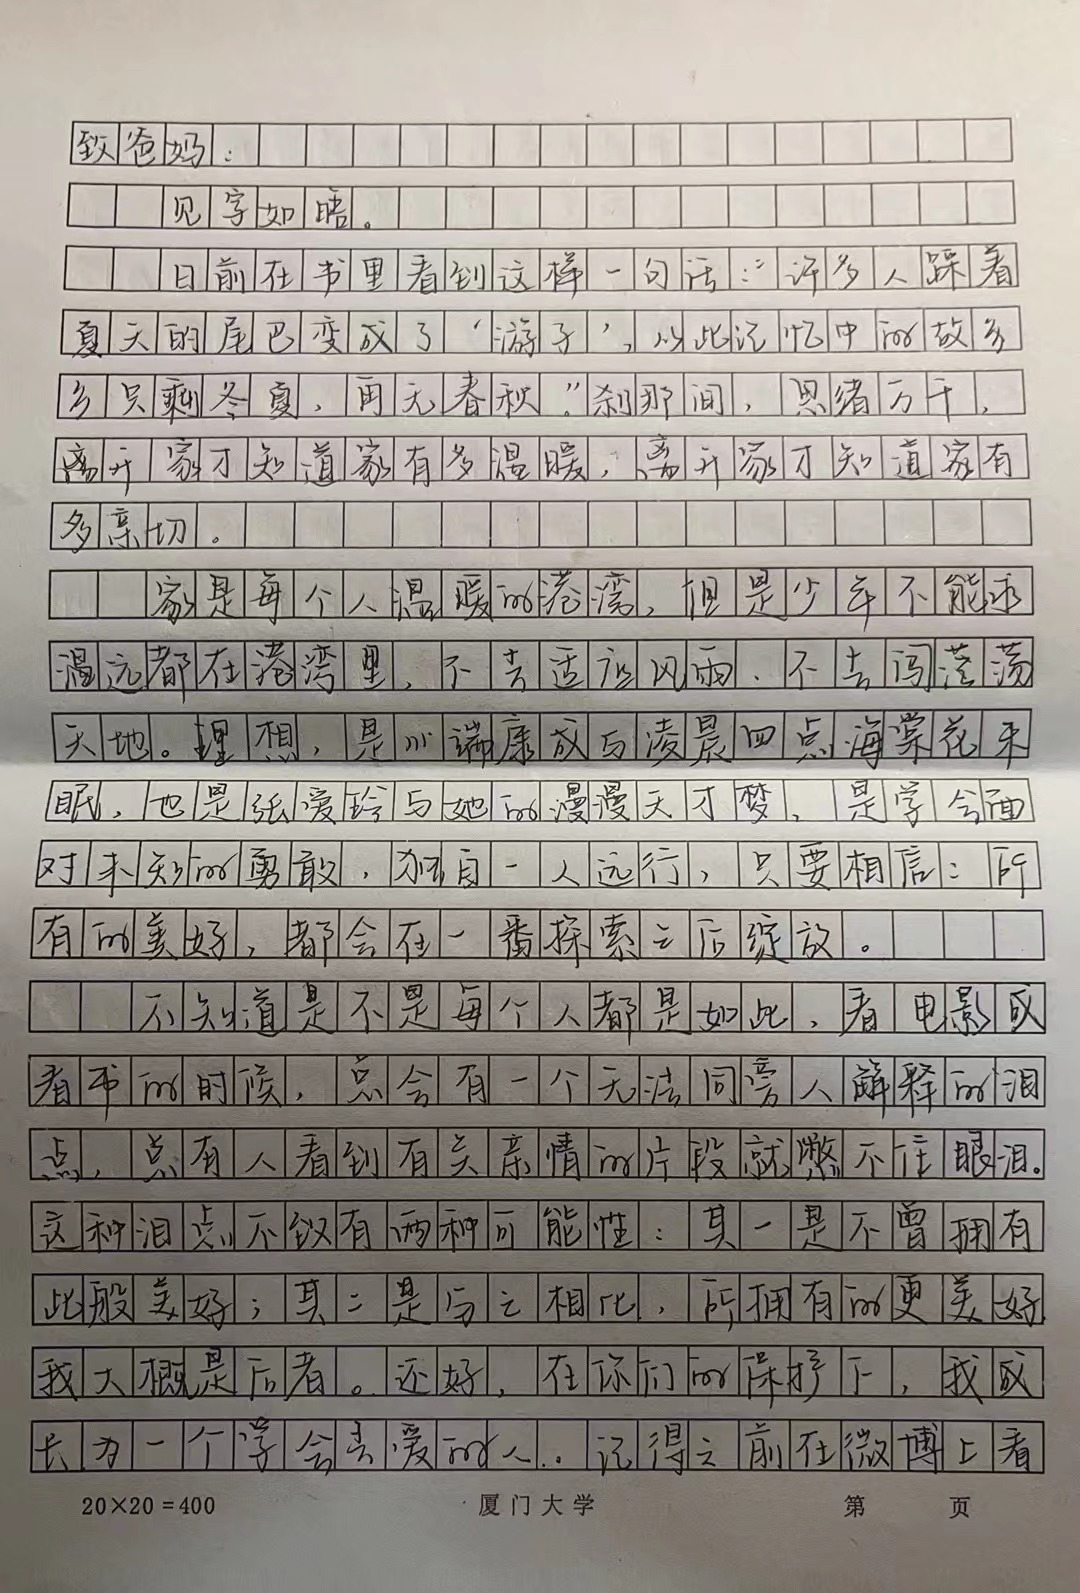 致爸妈：
见字如晤。
日前在书里看到这样一句话：“许多人踩着
夏天的尾巴变成了‘游子’，从此记忆中的故乡
乡只剩冬夏，再无春秋。”刹那间，思绪万千，
离开家才知道家有多温暖，离开家才知道家有
多亲切。
家是每个人温暖的港湾，但是少年不能永
温远都在港湾里，不去适应风雨、不去闯荡荡
天地。理想，是川端康成与凌晨四点海棠花未
眠，也是张爱玲与她的漫漫天才梦，是学会面
对未知的勇敢，独自一人远行，只要相信：所
有的美好，都会在一番探索之后绽放。
不知道是不是每个人都是如此，看电影或
看书的时候，总会有一个无法同旁人解释的泪
点，总有人看到有关亲情的片段就憋不住眼泪。
这种泪点不致有两种可能性：其一是不曾拥有
此般美好；其二是与之相比，所拥有的更美好
我大概是后者。还好，在你们的保护下，我成
长为一个学会去爱的人..记得之前在微博上看
20×20=400 厦门大学 第 页